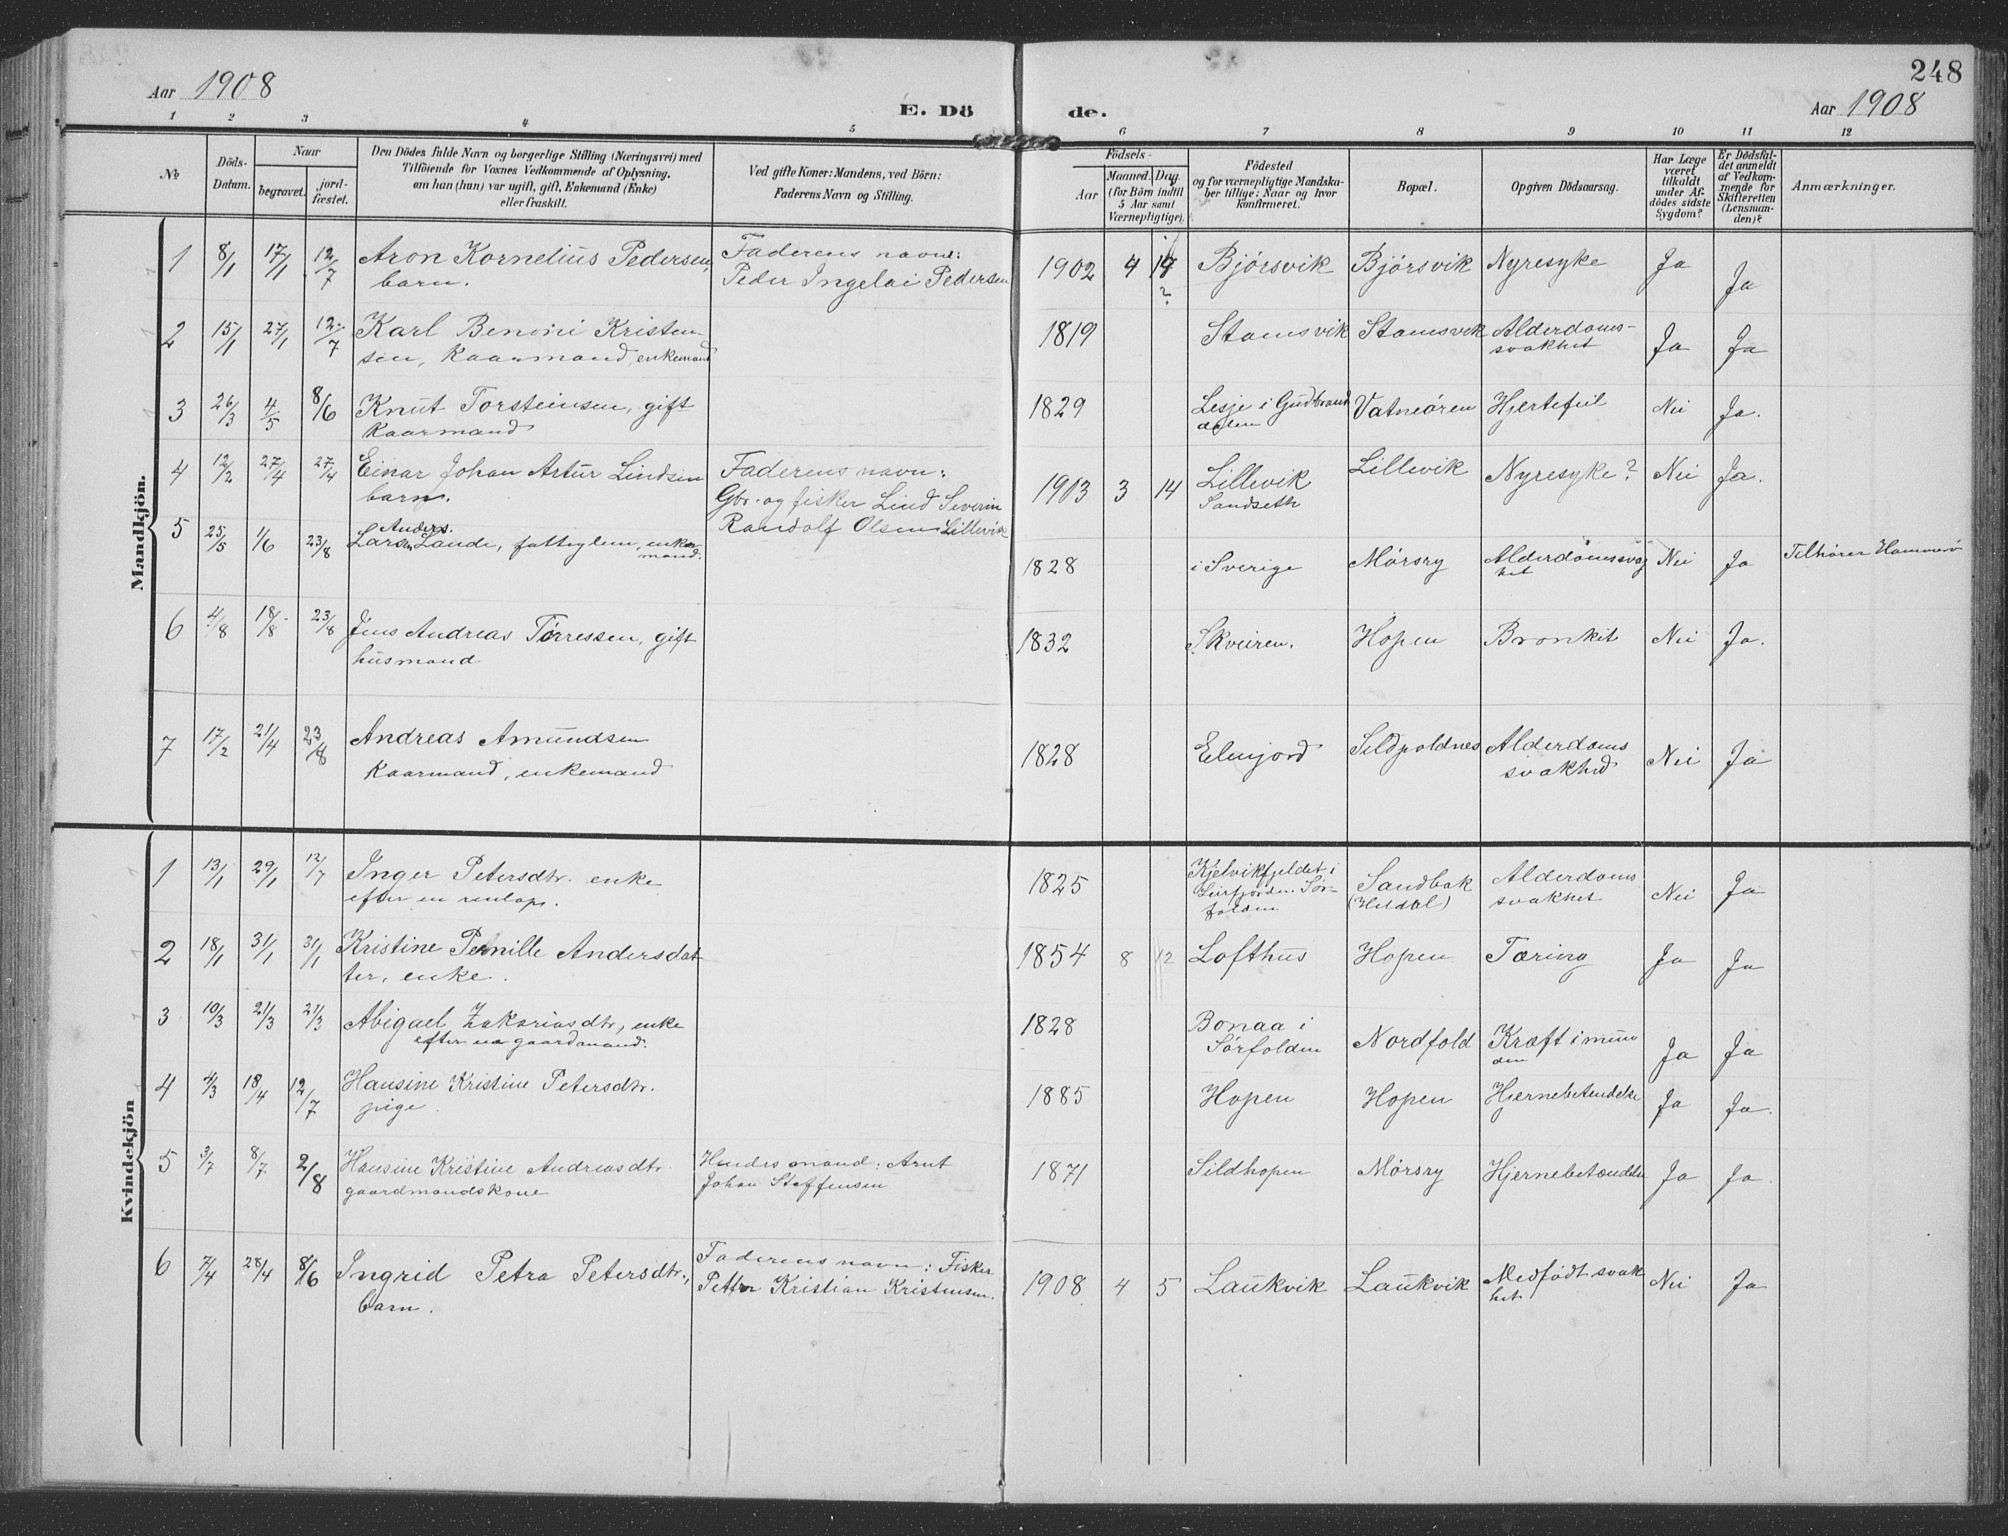 248
Aar 1908
E. Dö de.
Aar 1908
1 2 3 4 5 6 7 8 9 10 11 12
No
Döds-
Datum.
Naar
begravet.
jord-
fæstet.
Den Dödes fulde Navn og borgerlige Stilling (Næringsvei) med
Tilföiende for Voxnes Vedkommende af Oplysning,
om han (hun) var ugift, gift, Enkemand (Enke)
eller fraskilt.
Ved gifte Koner: Mandens, ved Börn:
Faderens Navn og Stilling.
Födsels-
Aar
Maaned. Dag
(for Börn indtil
5 Aar samt
Værnepligtige).
Födested
og for værnepligtige Mandska-
ber tillige: Naar og hvor
konfirmeret.
Bopæl.
Opgiven Dödsaarsag.
Har Læge
været
tilkaldt
under Af-
dödes sidste
Sygdom?
Er Dödsfal-
det anmeldt
af Vedkom-
mende for
Skifteretten
(Lensman-
den)?
Anmærkninger.
Mandkjön.
1 8/1 17/1 12/7 Aron Kornelius Pedersen, Faderens navn: 1902 4 14 Bjórsvik Bjórsvik Nyresyke Ja Ja
barn. Peder Ingelai Pedersen ?
2 15/1 27/1 12/7 Karl Benoni Kristen- 1819 Stamsvik Stamsvik Alderdoms- Ja Ja
sen, kaarmand, enkemand svakhet
3 26/3 4/5 8/6 Knut Torsteinsen, gift 1829 Lesje i Gudbrands Vatneören Hjertefeil Nei Ja.
kaarmand dalen
4 12/2 27/4 27/4 Einar Johan Artur Lindsen Faderens navn: 1903 3 14 Lillevik Lillevik Nyresyke? Nei Ja.
barn. Gbr. og fisker Lind Severin Sandseth
Randolf Olsen Lillevik
5 25/5 1/6 23/8 Anders.
Lars Lande, fattiglem, enke- 1828 i Sverige Mórsry Alderdomssvag Nei Ja Tilhører Hammerö
mand. het
6 4/8 18/8 23/8 Jens Andreas Tørressen, gift 1832 Skveiren. Hopen Bronkit Nei Ja.
husmand
7 17/2 21/4 23/8 Andreas Amundsen 1828 Elvejord Sildpoldnes Alderdoms Nei Ja
kaarmand, enkemand svakhed
Kvindekjön
1 13/1 29/1 12/7 Inger Petersdtr. enke 1825 Kjelvikfjeldet i Sandbak Alderdoms Nei Ja
efter en renlap. Leirfjorden Sør- (Heldal) svakhet
folden
2 18/1 31/1 31/1 Kristine Pernille Andersdat 1854 8 12 Lofthus Hopen Tæring Ja Ja
ter, enke.
3 10/3 21/3 21/3 Abigael Zakariasdtr, enke 1828 Bonaa i Nordfold Kræft i mun Ja Ja
efter en gaardmand. Sørfolden den
4 4/3 18/4 12/7 Hansine Kristine Petersdtr. 1885 Hopen Hopen Hjernebetendelse Ja Ja.
pige.
5 3/7 8/7 2/8 Hansine Kristine Andreasdtr. Hendes mand: Arnt 1871 Sildhopen Mórsry Hjernebetændelse Ja Ja.
gaardmandskone Johan Steffensen
6 7/4 28/4 8/6 Ingrid Petra Petersdtr., Faderens navn: Fisker 1908 4 5 Laukvik Laukvik Medfödt svak Nei Ja
barn. Petter Kristian Kristensen. het